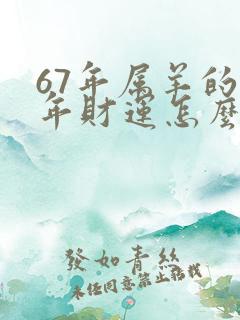 67年属羊的
年财运怎麽
發如青絲
未经同意禁止搭我